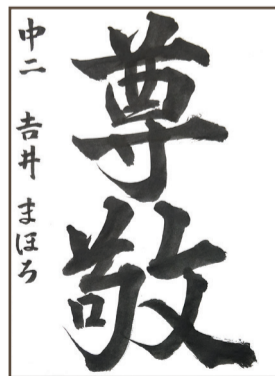 尊敬
中二 吉井 まほろ